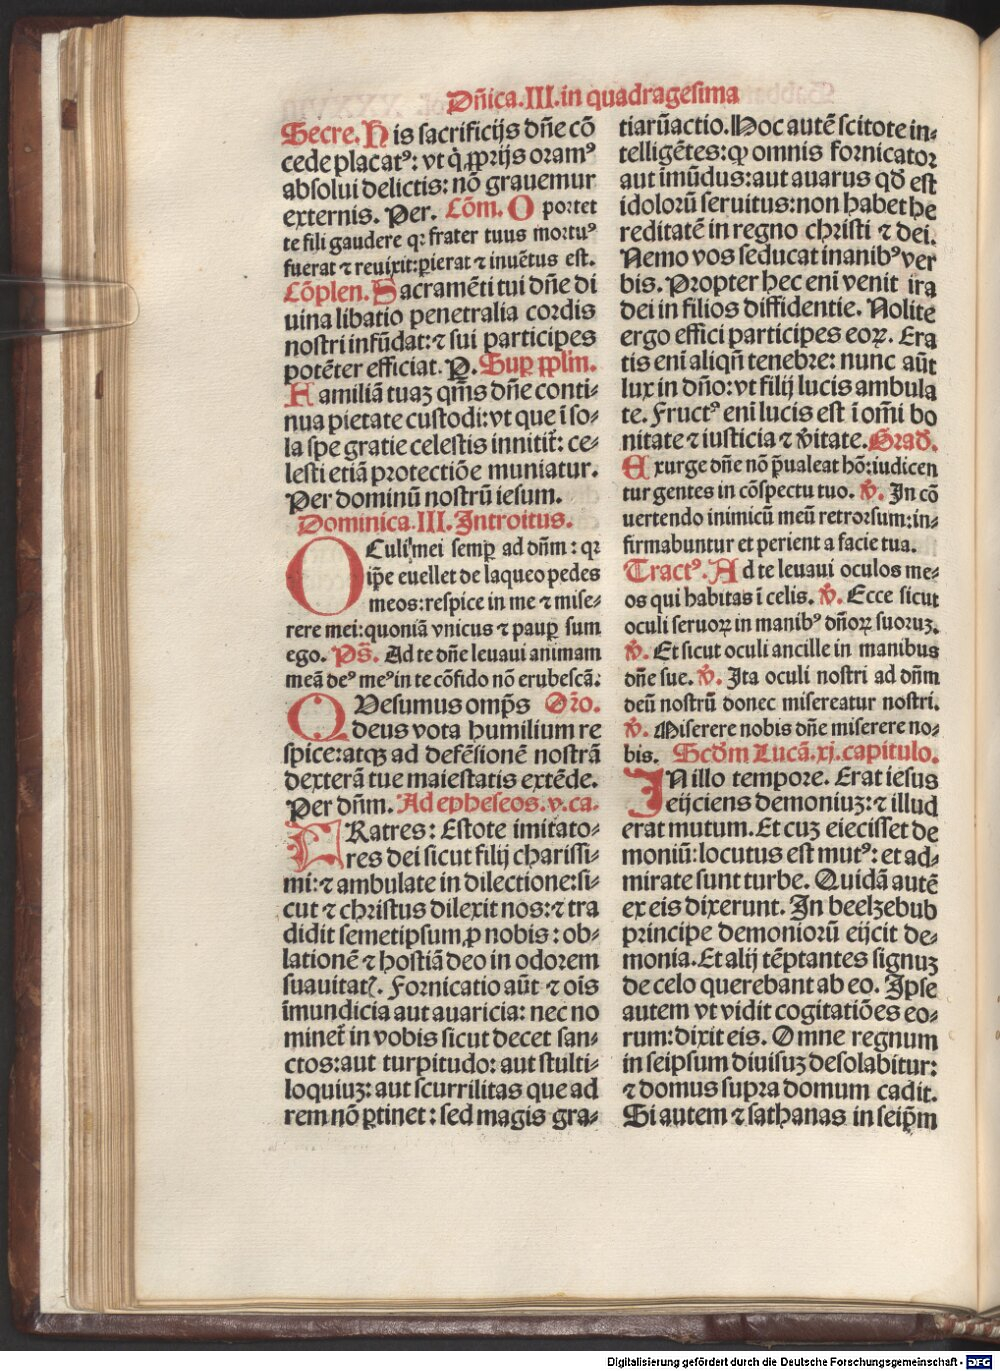 Dñica.III.in quadragesima
Secre. His sacrificijs dñe cō
cede placatꝰ: vt q̇ ꝓprijs oramꝰ
absolui delictis: nō grauemur
externis. Per. Cōm. O portet
te fili gaudere qꝛ frater tuus mortuꝰ
fuerat ⁊ reuixit: ꝑierat ⁊ inuētus est.
Cōplen. Sacramēti tui dñe di
uina libatio penetralia cordis
nostri infūdat: ⁊ sui participes
potēter efficiat. P. Suꝑ ꝓplm.
Familiā tuaꝫ qm̄s dñe conti-
nua pietate custodi: vt que ī so-
la spe gratie celestis innitit̄: ce-
lesti etiā protectiōe muniatur.
Per dominū nostrū iesum.
Dominica.III.Introitus.
OCuli mei semꝑ ad dñm: qꝛ
ip̄e euellet de laqueo pedes
meos: respice in me ⁊ mise-
rere mei: quoniā vnicus ⁊ pauꝑ sum
ego. Ps̄. Ad te dñe leuaui animam
meā deꝰ meꝰ in te cōfido nō erubescā:
QVesumus omp̄s Or̄o.
deus vota humilium re
spice: atqꝫ ad defēsionē nostrā
dexterā tue maiestatis extēde.
Per dñm. Ad epheseos.v.ca.
FRatres: Estote imitato-
res dei sicut filij charissi-
mi: ⁊ ambulate in dilectione: si-
cut ⁊ christus dilexit nos: ⁊ tra
didit semetipsum ꝓ nobis: ob-
lationē ⁊ hostiā deo in odorem
suauitatꝭ. Fornicatio aūt ⁊ ois̄
īmundicia aut auaricia: nec no
minet̄ in vobis sicut decet san-
ctos: aut turpitudo: aut stulti-
loquiuꝫ: aut scurrilitas que ad
rem nō ꝑtinet: sed magis gra-
tiarū actio. Hoc autē scitote in-
telligētes: ꝙ omnis fornicator
aut īmūdus: aut auarus qd̄ est
idolorū seruitus: non habet he
reditatē in regno christi ⁊ dei.
Nemo vos seducat inanibꝰ ver
bis. Propter hec eni venit ira
dei in filios diffidentie. Nolite
ergo effici participes eoꝝ. Era
tis eni aliqñ tenebre: nunc aūt
lux in dño: vt filij lucis ambula
te. Fructꝰ eni lucis est ī om̄i bo
nitate ⁊ iusticia ⁊ v̄itate. Grad̄.
Exurge dñe nō p̄ualeat hō: iudicen
tur gentes in cōspectu tuo. ℣. In cō
uertendo inimicū meū retrorsum: in-
firmabuntur et perient a facie tua.
Tractꝰ. Ad te leuaui oculos me-
os qui habitas ī celis. ℣. Ecce sicut
oculi seruoꝝ in manibꝰ dñoꝝ suoruꝫ.
℣. Et sicut oculi ancille in manibus
dñe sue. ℣. Ita oculi nostri ad dñm
deū nostrū donec misereatur nostri.
℣. Miserere nobis dñe miserere no-
bis. Scd̄m Lucā.xj.capitulo.
IN illo tempore. Erat iesus
eijciens demoniuꝫ: ⁊ illud
erat mutum. Et cuꝫ eiecisset de
moniū: locutus est mutꝰ: et ad-
mirate sunt turbe. Quidā autē
ex eis dixerunt. In beelzebub
principe demoniorū eijcit de-
monia. Et alij tēptantes signuꝫ
de celo querebant ab eo. Ipse
autem vt vidit cogitatiōes eo-
rum: dixit eis. Omne regnum
in seipsum diuisuꝫ desolabitur:
⁊ domus supra domum cadit.
Si autem ⁊ sathanas in seip̄m
Digitalisierung gefördert durch die Deutsche Forschungsgemeinschaft - DFG